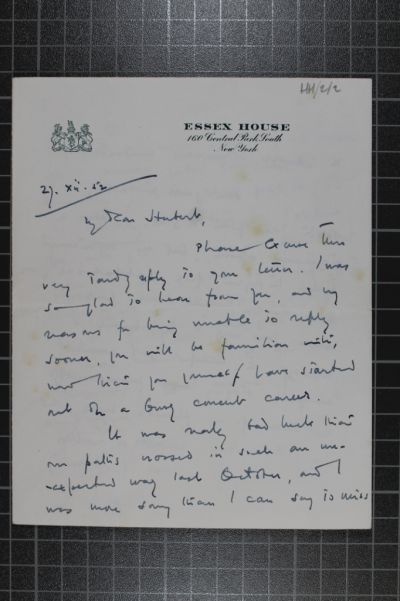 HH/2/2
ESSEX HOUSE
160 Central Park South
New York
27. XII. 52
My Dear Hubert,
Please excuse this
very tardy reply to your letter. I was
so glad to hear from you, and my
reasons for being unable to reply
sooner, you will be familiar with,
now that you yourself have started
out on a busy concert career.
It was really bad luck that
our paths crossed in such an un-
-expected way last October, and I
was more sorry than I can say to miss